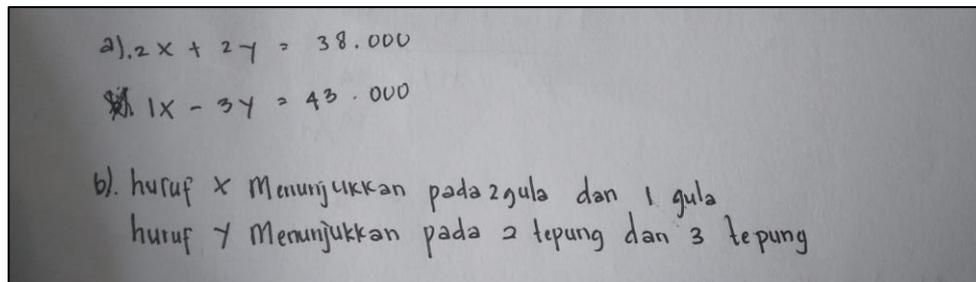 a). 2x + 2y = 38.000
1x - 3y = 43.000
b). huruf x Menunjukkan pada 2 gula dan 1 gula
huruf y Menunjukkan pada 2 tepung dan 3 tepung